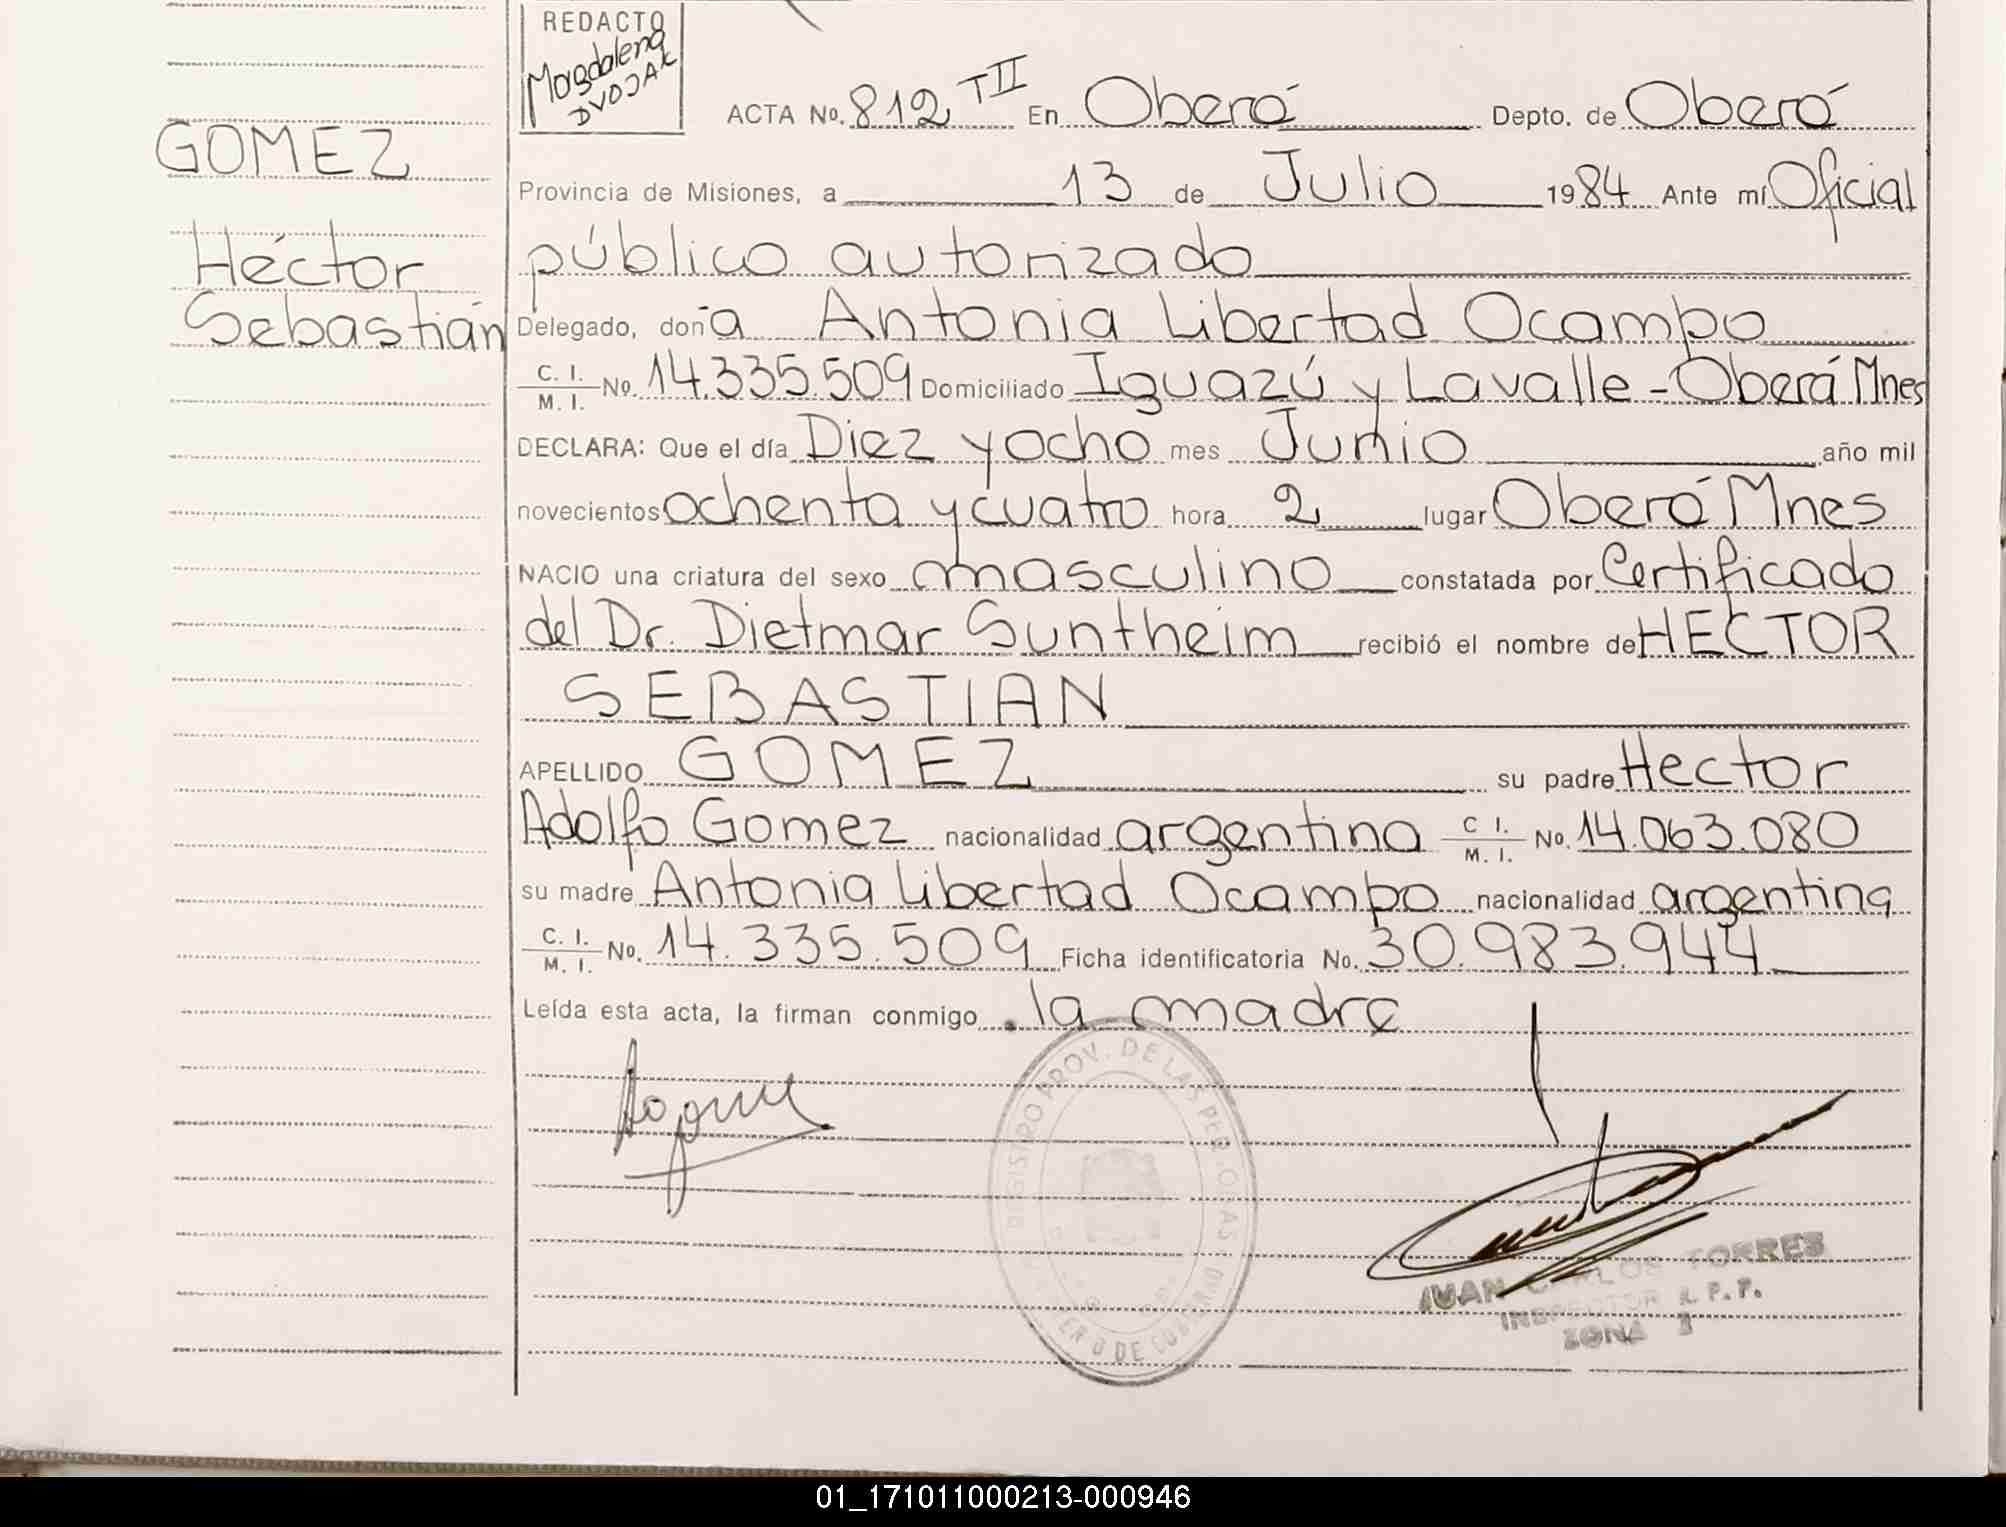 REDACTO
Magdalena
DVOJAK
ACTA No. 812 TII En Oberá Depto. de Oberá
GOMEZ
Provincia de Misiones, a 13 de Julio 1984 Ante mí Oficial
Héctor
público autorizado
Sebastián
Delegado, doña Antonia Libertad Ocampo
C. I. M. I. No. 14.335.509 Domiciliado Iguazú y Lavalle - Oberá Mnes
DECLARA: Que el día Diez y ocho mes Junio año mil
novecientos ochenta y cuatro hora 2 lugar Oberá Mnes
NACIO una criatura del sexo masculino constatada por Certificado
del Dr. Dietmar Suntheim recibió el nombre de HECTOR
SEBASTIAN
APELLIDO GOMEZ su padre Hector
Adolfo Gomez nacionalidad argentina C I. M. I. No. 14.063.080
su madre Antonia Libertad Ocampo nacionalidad argentina
C. I. M. I. No. 14.335.509 Ficha identificatoria No. 30.983.944
Leída esta acta, la firman conmigo la madre
REGISTRO PROV. DE LAS PERSONAS
JUAN CARLOS TORRES
INSPECTOR R. P. P.
ZONA
01_171011000213-000946